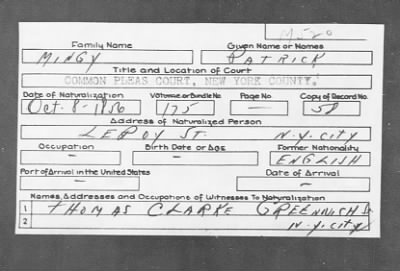 M520
Family Name Given Name or Names
MINGY PATRICK
Title and Location of Court
COMMON PLEAS COURT, NEW YORK COUNTY.
Date of Naturalization Volume or Bundle No. Page No. Copy of Record No.
Oct. 8-1856 175 - 58
Address of Naturalized Person
LEROY ST. N.Y. CITY
Occupation Birth Date or Age Former Nationality
- - ENGLISH
Port of Arrival in the United States Date of Arrival
- -
Names, Addresses and Occupations of Witnesses To Naturalization
1 THOMAS CLARKE GREENWICH St
2 N.Y. CITY